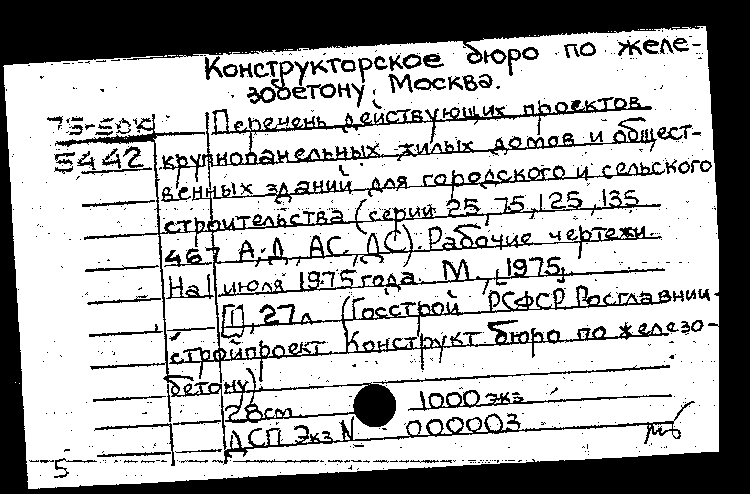 Конструкторское бюро по желе-
зобетону, Москва.
75-50к
Перечень действующих проектов
5442 крупнопанельных жилых домов и общест-
венных зданий для городского и сельского
строительства (серии 25, 75, 125, 135
467 А, Д, АС, ДС). Рабочие чертежи.
На 1 июля 1975 года. М., [1975].
[I], 27л (Госстрой РСФСР Росглавнии-
стройпроект. Конструкт бюро по железо-
бетону).
28см 1000 экз
ДСП Экз N 000003
5